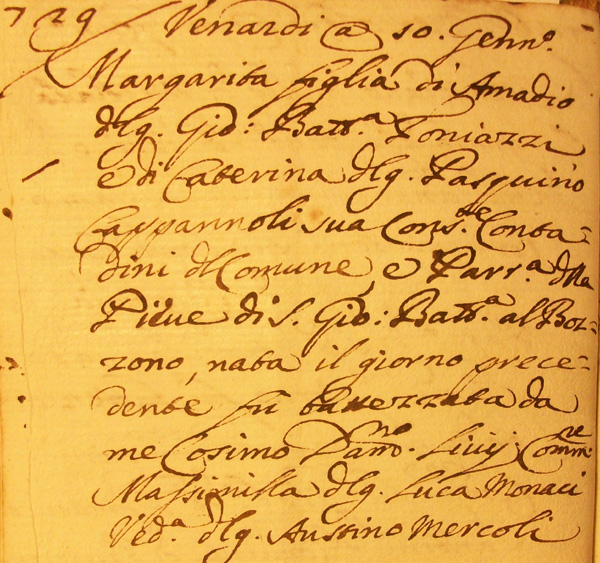 729 Venardi a 10. Genn.o
Margarita figlia di Amadio
dlq. Gio: Batt.a Toniazzi
e di Caterina dlq. Pasquino
Cappannoli sua Cons.te Conta-
dini dl Comune, e Parr.a dlla
Pieve di S. Gio: Batt.a al Boz-
zono, nata il giorno prece-
dente fu battezzata da
me Cosimo Dam.no Livij Comm.re
Massimilla dlq. Luca Monaci
Ved.a dlq. Austino Mercoli